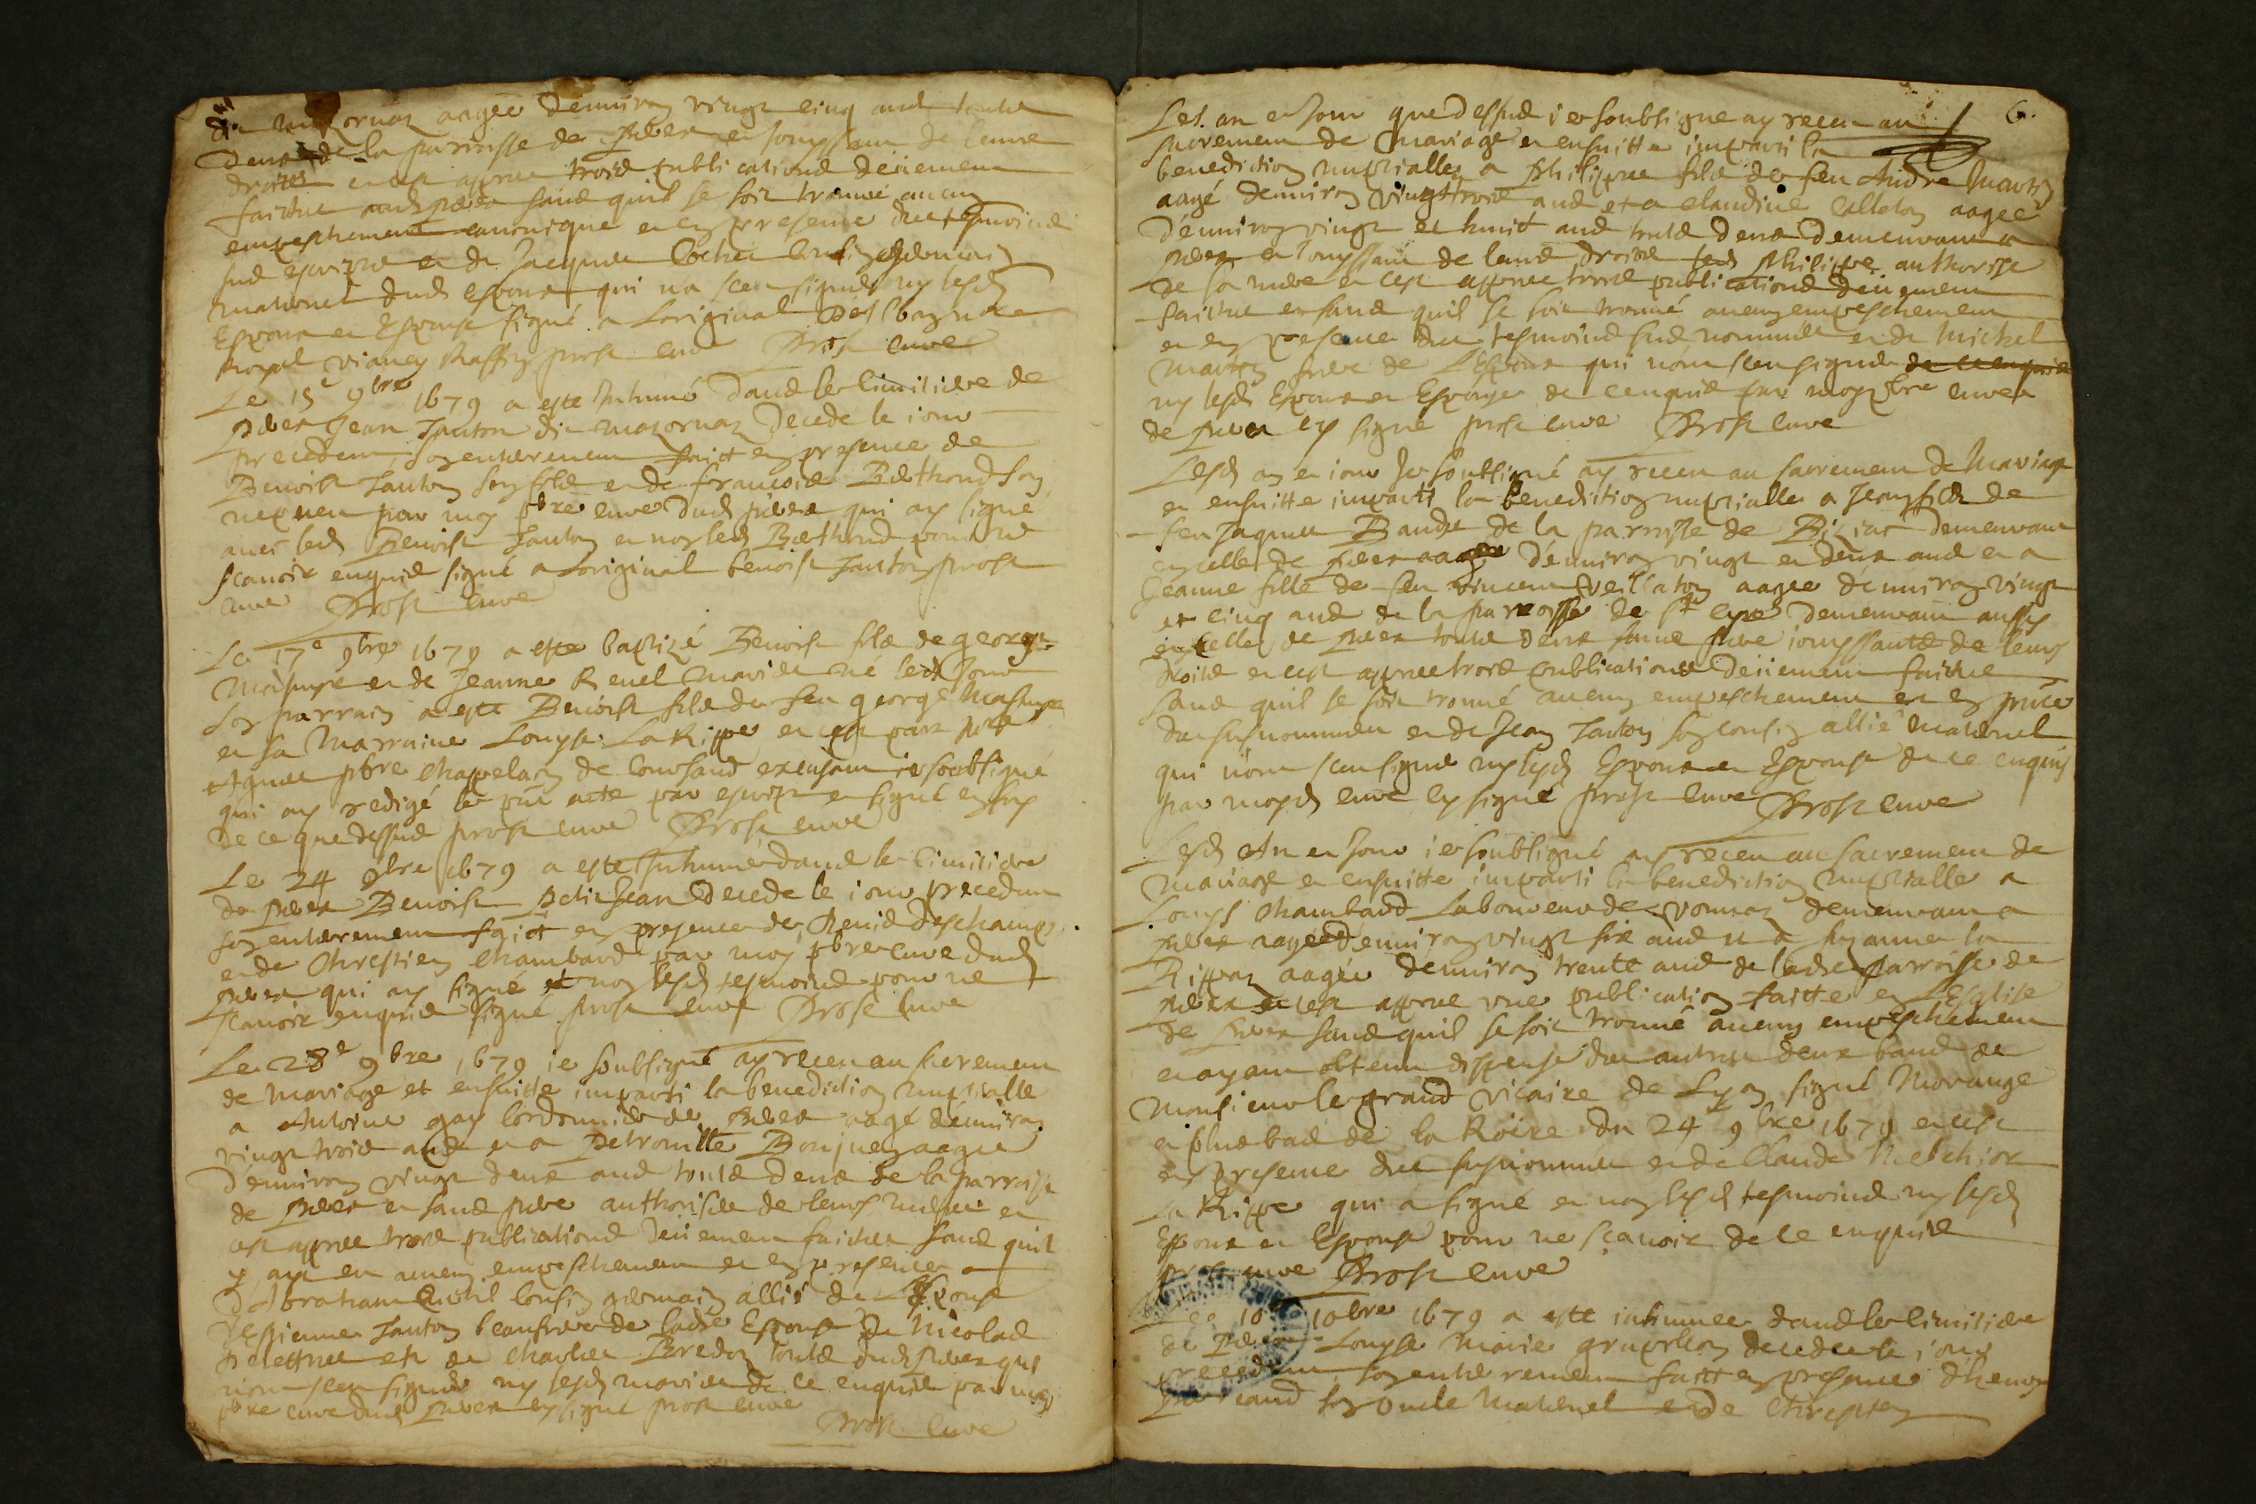 dit mazornaz aagée denviron vingt cinq ans toute
deux de la parroisse de Priay et jouyssant de leurs
droites et cest apprez trois publications deüement
faictes aud Priay sans quil se soit trouvé aucun
empeschement canonique et en presence des tesmoins
sus escripz et de Jacques Cochet cousin germain
maternel dud espoux qui na sceu signer ny lesd
Espoux et Espouse signé a Loriginal
Royal Vianey Raffin prost curé Prost curé
Le 15e 9bre 1679 a este Inhumé dans le Cimitiere de
Priay Jean Janton dit mazornaz decede le jour
precedent, son enterrement faict en presence de
Benoist Janton son filz et de francois Berthond son
nepveu par moy pbre curé dud priay qui ay signé
avec led Benoist Janton et non led Berthond pour ne
scavoir enquis signé a Loriginal benoist Janton prost
curé Prost curé
Le 17e 9bre 1679 a este baptizé Benoist filz de george
Masuyé et de Jeanne Revel mariez né led Jour
son parrain a este Benoist filz de feu george Masuyé
et sa Marraine Louyse La Rippe et cest par
pbre chapelain de excusant je soubsigné
qui ay redigé le pnt acte par escript et signé en foy
de ce que dessus prost curé Prost curé
Le 24 9bre 1679 a este Inhumé dans le Cimitiere
de priay Benoist Petit Jean decede le jour precedent
son enterrement faict en presence de Denis deschamps
et de Chrestien Chambard par moy pbre curé dud
priay qui ay signé et non lesd tesmoins pour ne
scavoir enquis signé prost curé Prost curé
Le 28e 9bre 1679 je soubsigné ay receu au sacrement
de mariage et ensuitte imparti la benediction nuptialle
a Antoine gay cordonnier de priay aagé denviron
vingt trois ans et a Petronille Bonjuen aagee
denviron vingt deux ans toute deux de la parroisse
de priay et sans pere authorisez de leurs meres et
cest apprez trois publications deüement faictes sans quil
y aye eu aucun empeschement et en presence
dAbraham cousin germain allié de Lespoux
Estienne Janton beaufrere de ladte Espouse de Nicolas
et de Charles Bredon toute dud priay qui
nont sceu signer ny lesd mariez de ce enquis par moy
pbre curé dud priay ay signé prost curé
Prost curé
6.
Lesd. an et jour que dessus je soubsigne ay receu au
sacrement de mariage et ensuitte imparti la
benediction nuptialle a Philippe filz de feu Andre Marton
aagé denviron vingt trois ans et a claudine Calleton aagée
denviron vingt et huict ans toute deux demeurant a
priay et jouyssant de leurs droits led Philippe authorisé
de sa mere et cest apprez trois publications deüement
faictes et sans quil se soit trouvé aucun empeschement
et en presence des tesmoins sus nommés et de Michel
Marton frere de Lespoux qui nont sceu signer de ce enquis
ny lesd Espoux et Espouse de ce enquis par moy pbre curé
de priay ay signé prost curé Prost curé
Lesd an et jour Je soubsigné ay receu au sacrement de Mariage
et ensuitte imparti la benediction nuptialle a Jean filz de
feu Jaques Baudet de la parroisse de Biziat demeurant
en celle de priay aagé denviron vingt et deux ans et a
Jeanne fille de feu vincent Veillaton aagee denviron vingt
et cinq ans de la parroisse de St cyre demeurant aussy
en celle de priay toute deux sans pere jouyssants de leurs
droits et cest apprez trois publications deüement faictes
sans quil se soit trouvé aucun empeschement et en pnce
des susnommez et de Jean Janton son cousin allié maternel
qui nont sceu signer ny lesd Espoux et Espouse de ce enquis
par moyd curé ay signé prost curé Prost curé
Lesd An et Jour je soubsigné ay receu au sacrement de
mariage et ensuitte imparti la benediction nuptialle a
Louys Chambard Laboureur de vonnaz demeurant a
priay aagé denviron vingt six ans et a suzanne la
Rippaz aagée denviron trente ans de ladte parroisse de
priay et cest apprez une publication faitte en LEglise
de priay sans quil se soit trouvé aucun empeschement
et ayant obtenu dispense des autres deux bans de
Monsieur le grand vicaire de Lyon signé Morange
et plus bas de la Roire du 24e 9bre 1679 et cest
en presence des susnommez et de Claude Melchior
La Rippe qui a signé et non lesd tesmoins ny lesd
Espoux et Espouse pour ne sçavoir de ce enquis
prost curé Prost curé
Le 10e 10bre 1679 a este inhumee dans le Cimitiere
de Priay Louyse Marie decedee le jour
precedent son enterrement faitt en presence dhenry
son oncle maternel et de Chrestien